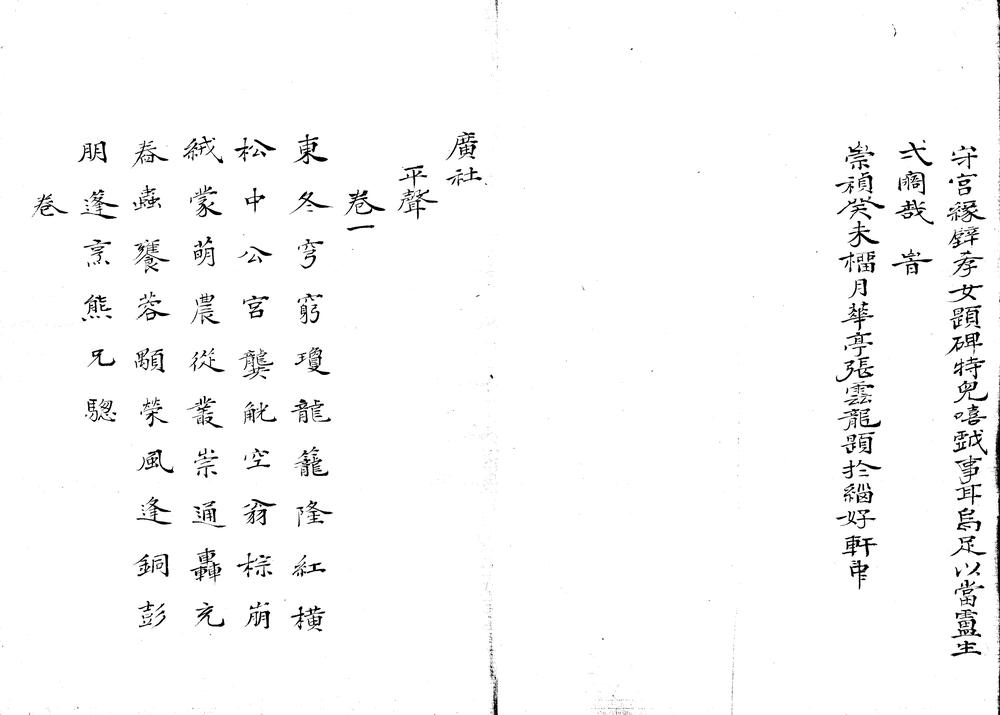 守宮緣壁孝女題碑特兒嘻戲事耳烏足以當靈生
弍闊哉峕
崇禎癸未橊月華亭張雲龍題於緇好軒中
廣社
平聲
卷一
東冬穹窮瓊龍籠隆紅橫
松中公宮龔觥空翁棕崩
絨蒙萌農從叢崇通轟充
舂蟲饔蓉顒榮風逢銅彭
朋蓬烹熊兄驄
卷